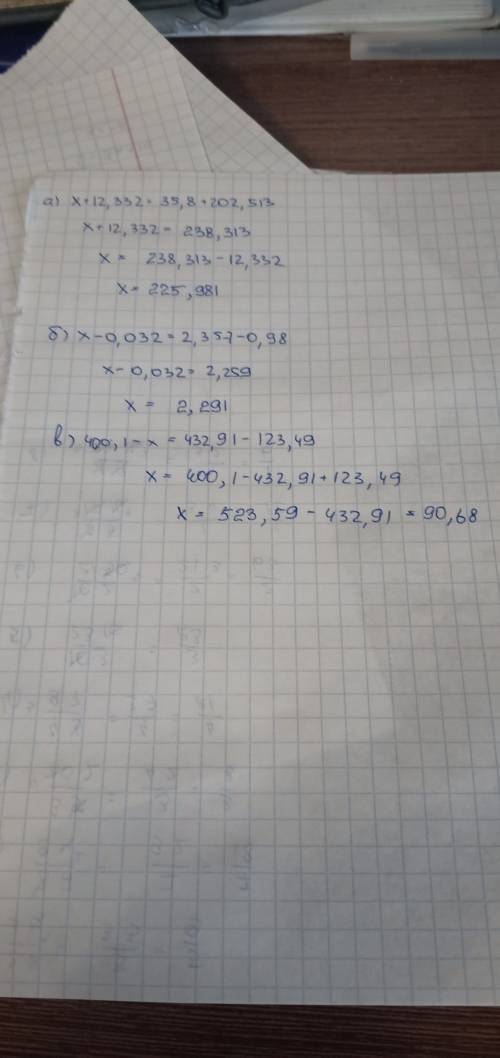 а) x+12,332=35,8+202,513
x+12,332=238,313
x=238,313-12,332
x=225,981
б) x-0,032=2,357-0,98
x-0,032=2,259
x=2,291
в) 400,1-x=432,91-123,49
x=400,1-432,91+123,49
x=523,59-432,91=90,68